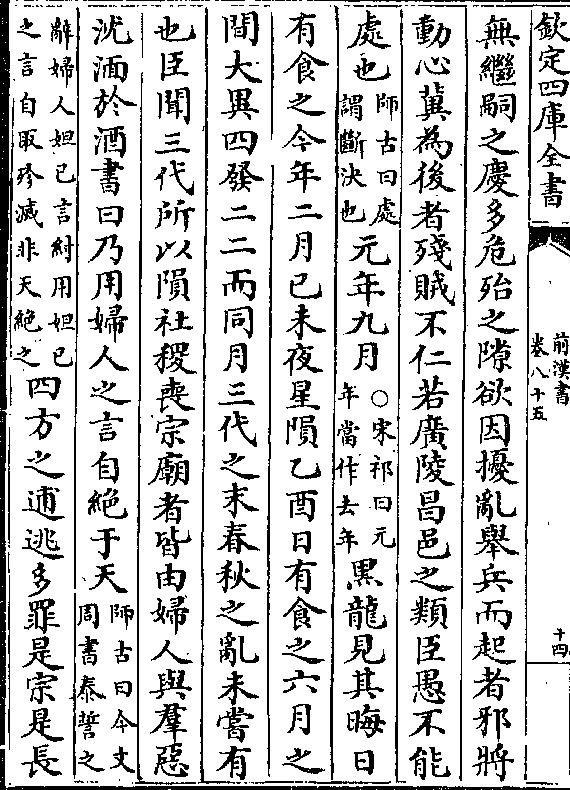 欽定四庫全書
前漢書
卷八十五
十四
無繼嗣之慶多危殆之隙欲因擾亂舉兵而起者邪將
動心冀為後者殘賊不仁若廣陵昌邑之類臣愚不能
處也師古曰處謂斷決也元年九月○宋祁曰元年當作去年黑龍見其晦日
有食之今年二月己未夜星隕乙酉日有食之六月之
間大異四發二二而同月三代之末春秋之亂未嘗有
也臣聞三代所以隕社稷喪宗廟者皆由婦人與羣惡
沈湎於酒書曰乃用婦人之言自絶于天師古曰今文周書泰誓之
辭婦人妲己言紂用妲己之言自取殄滅非天絶之四方之逋逃多罪是宗是長